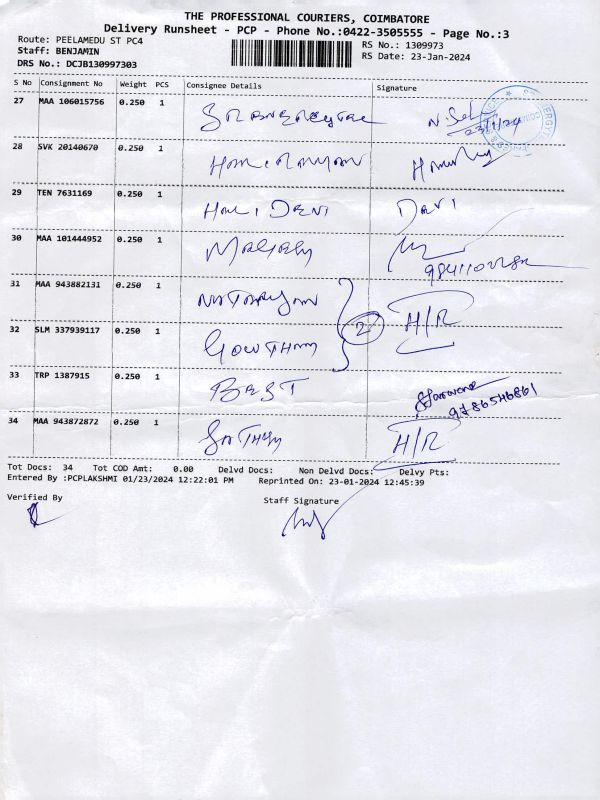 THE PROFESSIONAL COURIERS, COIMBATORE
Delivery Runsheet - PCP - Phone No.:0422-3505555 - Page No.:3
Route: PEELAMEDU ST PC4
RS No.: 1309973
Staff: BENJAMIN
RS Date: 23-Jan-2024
DRS No.: DCJB130997303
S No Consignment No Weight PCS Consignee Details Signature
27 MAA 106015756 0.250 1
23/1/24
28 SVK 20140670 0.250 1
29 TEN 7631169 0.250 1 HARI DEVI DEVI
30 MAA 101444952 0.250 1
31 MAA 943882131 0.250 1 NATARAJAN H/R
2
32 SLM 337939117 0.250 1 GOWTHAM
33 TRP 1387915 0.250 1 BEST
9786546861
34 MAA 943872872 0.250 1 H/R
Tot Docs: 34 Tot COD Amt: 0.00 Delvd Docs: Non Delvd Docs: Delvy Pts:
Entered By :PCPLAKSHMI 01/23/2024 12:22:01 PM Reprinted On: 23-01-2024 12:45:39
Verified By Staff Signature